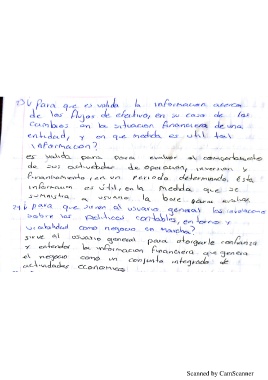 73¿ Para que es valida la informacion acerca
de los flujos de efectivo, en su caso de los
cambios en la situacion financiera de una
entidad, y en que medida es util tal
informacion?
es valida para para evaluar el comportamiento
de sus actividades de operacion, inversion y
financiamiento, en un periodo determinado. Esta
informacion es util, en la medida que se
suministra a usuario la base para evaluar
74¿ para que sirven al usuario general las revelaciones
sobre las politicas contables, entorno y
viabilidad como negocio en marcha?
sirve al usuario general para otorgarle confianza
y entender la informacion financiera que genera
el negocio como un conjunto integrado de
actividades economicas
Scanned by CamScanner